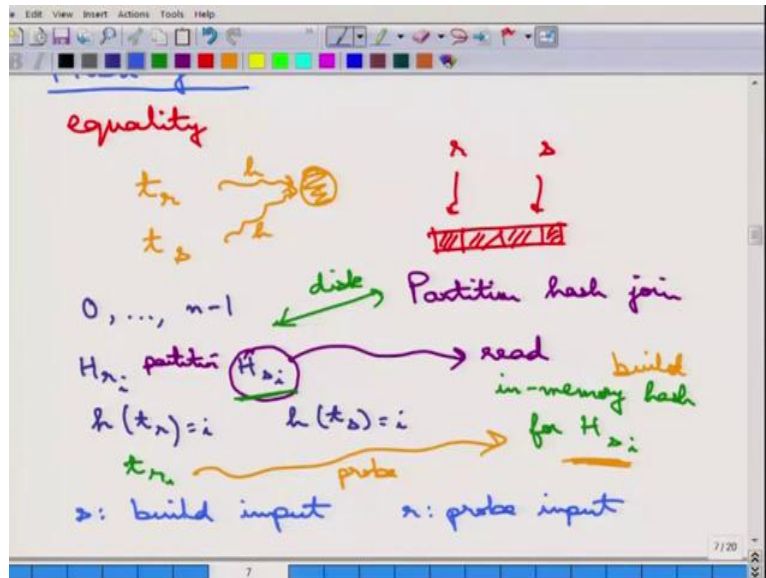 Edit View Insert Actions Tools Help
equality
t_r h
t_s h
r s
disk
Partition hash join
0, ..., n-1
H_r_i partition H_s_i read
build
in-memory hash
h(t_r)=i h(t_s)=i for H_s_i
t_r probe
s: build input r: probe input
7/20
7